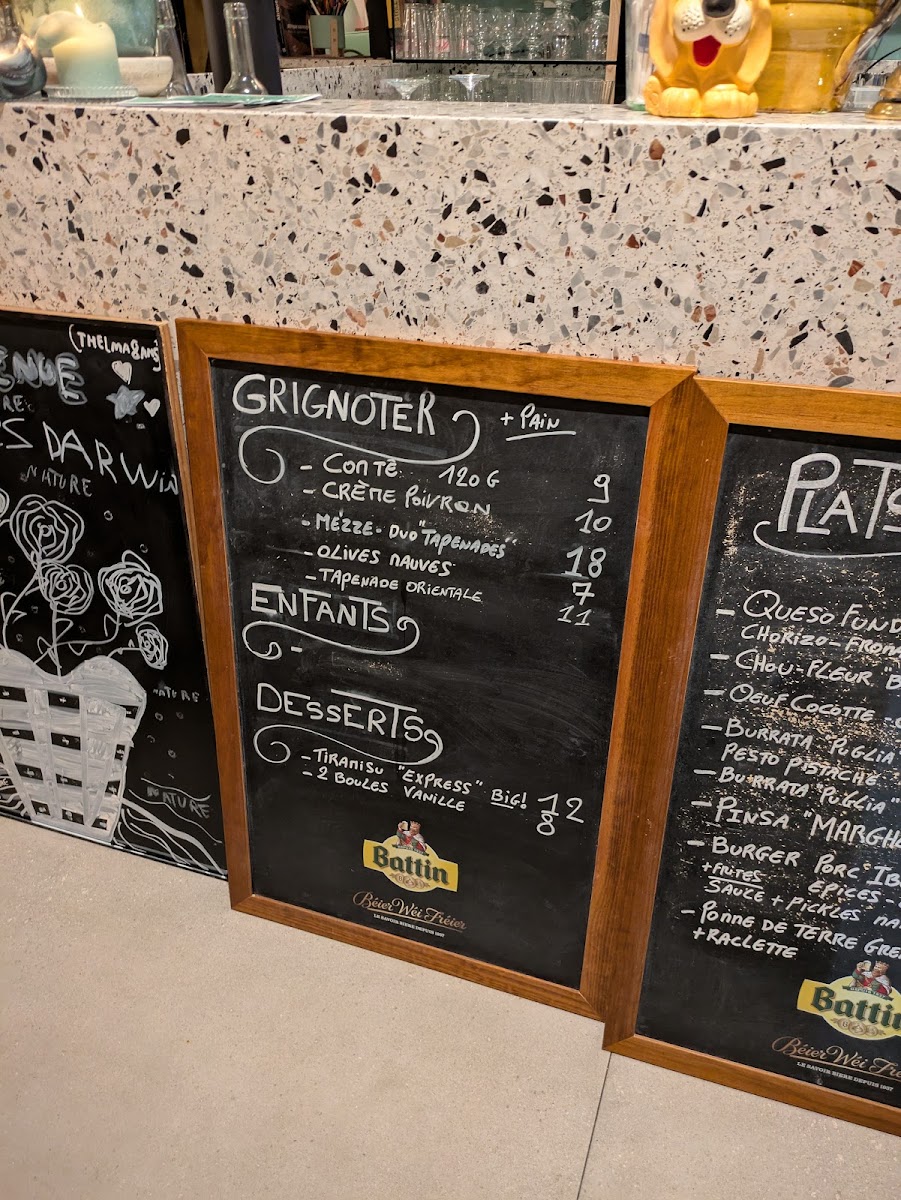 (THELMA
ES DARWIN
NATURE
NATURE
NATURE
GRIGNOTER + PAIN
- COMTÉ 120G 9
- CRÈME POIVRON 10
- MEZZE - DUO "TAPENADES" 18
- OLIVES MAUVES 7
- TAPENADE ORIENTALE 11
ENFANTS
-
DESSERTS
- TIRAMISU "EXPRESS" BIG! 12
- 2 BOULES VANILLE 8
Battin
Béier Wéi Fréier
LE SAVOIR BIERE DEPUIS 1937
PLATS
- QUESO FUND
CHORIZO - FROMA
- CHOU-FLEUR "B
- OEUF COCOTTE -
- BURRATA "PUGLIA
PESTO PISTACHE
- BURRATA "PUGLIA"
- PINSA "MARGH
- BURGER PORC "IB
+ FRITES EPICES -
SAUCE + PICKLES
- POMME DE TERRE GRE
+ RACLETTE
Battin
Béier Wéi Fré
LE SAVOIR BIERE DEPUIS 1937